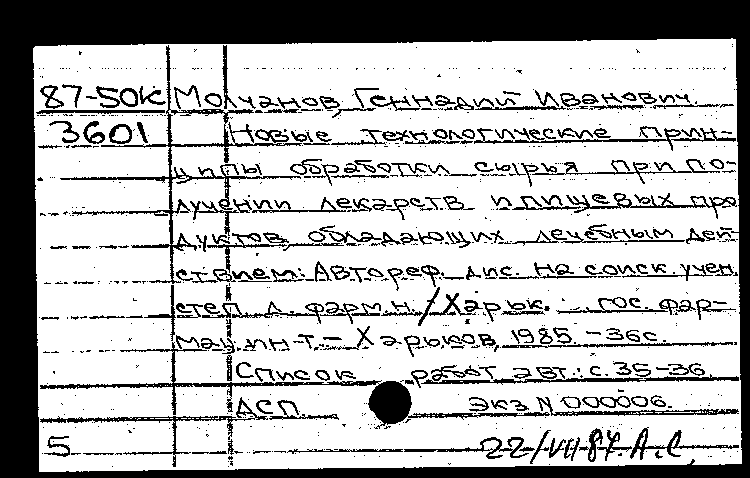 87-50К Молчанов, Геннадий Иванович.
3601 Новые технологические прин-
ципы обработки сырья при по-
лучении лекарств и пищевых про
дуктов, обладающих лечебным дей-
ствием: Автореф. дис. на соиск. учен.
степ. д. фарм.н./Харьк. гос. фар-
мац. ин-т. - Харьков, 1985. - 36с.
Список работ авт.: с. 35-36.
ДСП. Экз N 000006.
5 22/VII 87. А.С.